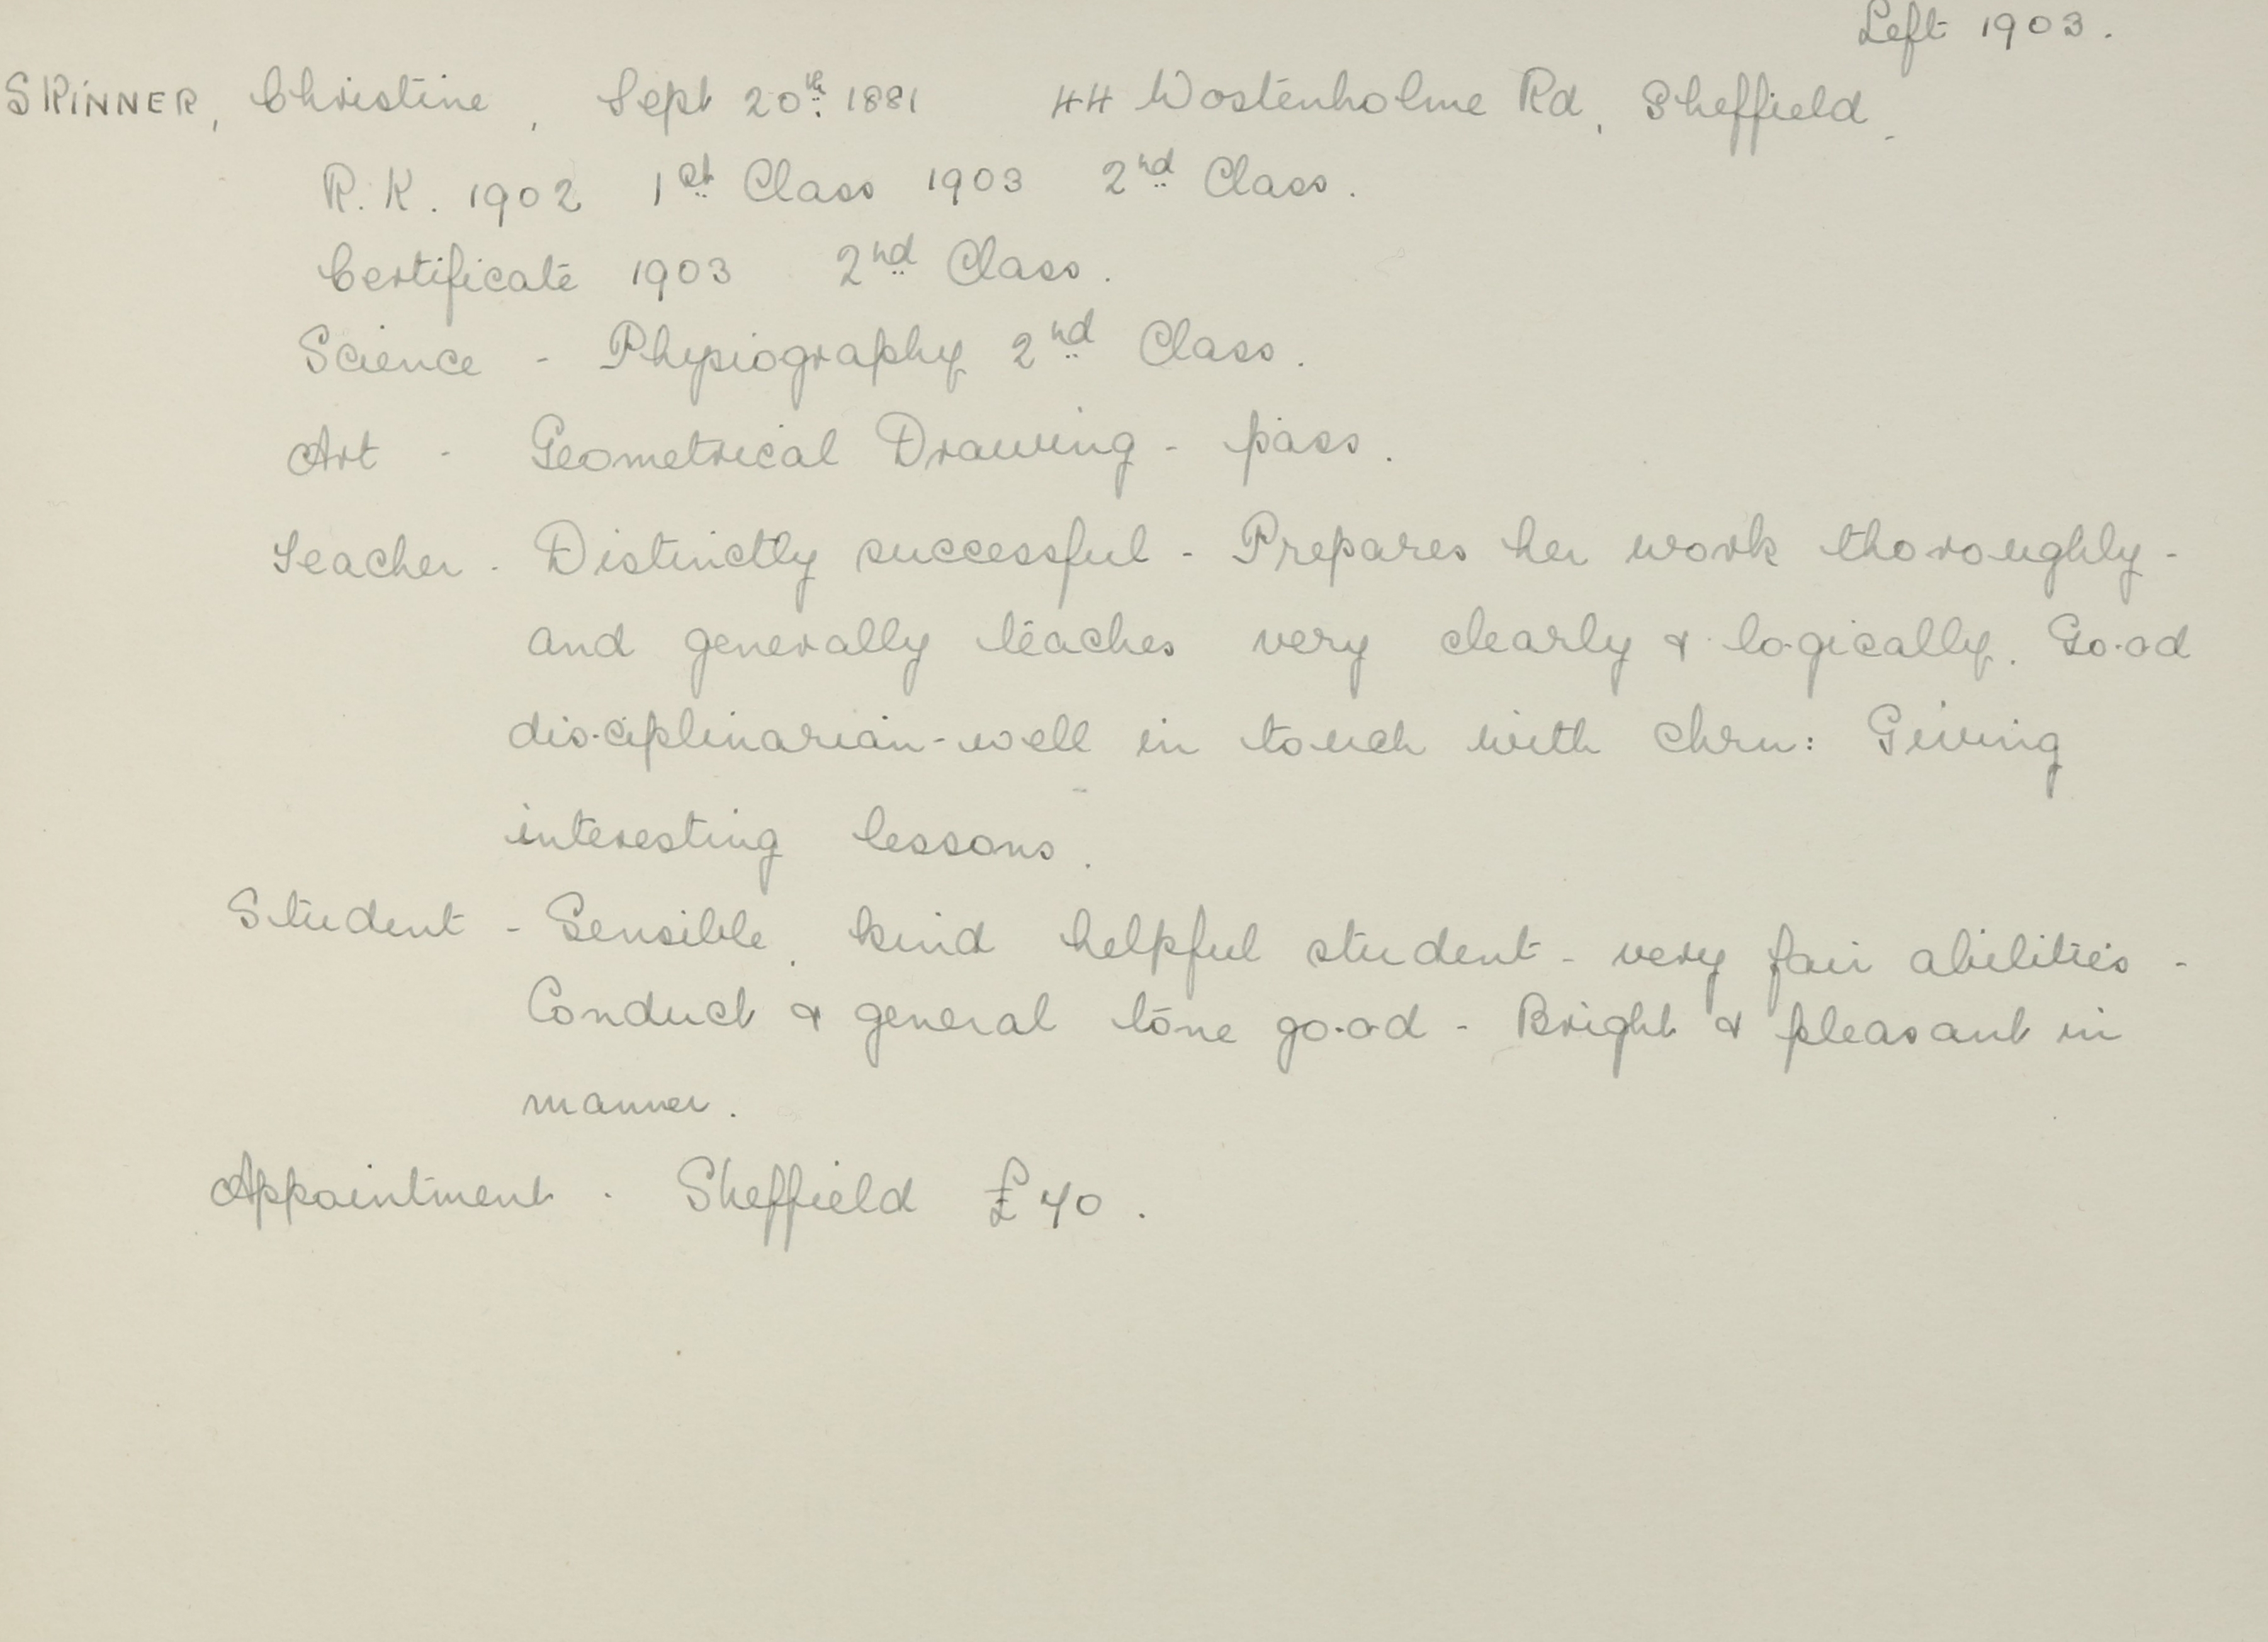 Left 1903.
SKINNER, Christine, Sept 20th 1881 44 Wostenholme Rd, Sheffield.
R.K. 1902 1st Class 1903 2nd Class.
Certificate 1903 2nd Class.
Science - Physiography 2nd Class.
Art - Geometrical Drawing - pass.
Teacher - Distinctly successful - Prepares her work thoroughly -
and generally teaches very clearly & logically. Good
disciplinarian - well in touch with chrn: Giving
interesting lessons.
Student - Sensible, kind helpful student - very fair abilities -
Conduct & general tone good - Bright & pleasant in
manner.
Appointment - Sheffield £40.